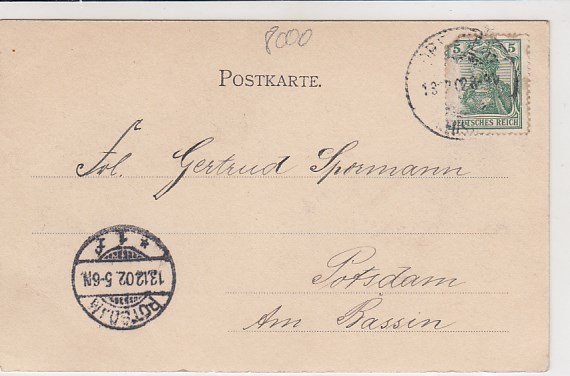 8000
POSTKARTE.
5 5
DEUTSCHES REICH
Frl. Gertrud Spormann
Potsdam
Am Bassin
* 1 f
13.12.02. 5-6N.
POTSDAM